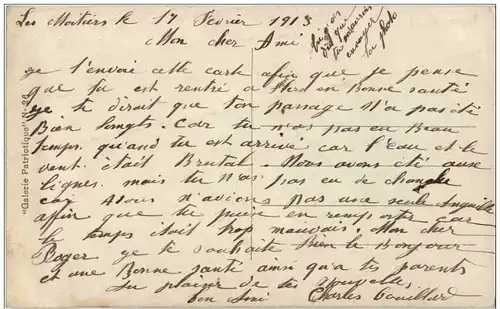 Les Moitiers le 17 Fevrier 1913
Mon cher Ami
je t'envoi cette carte afin que je pense
que tu est rentré a en Bonne santé
je te dirait que ton passage n'a pas été
Bien longts. Car tu n'as pas eu Beau
temps. quand tu est arrivé car l'Eau et le
vent était Brutal. Nous avons été aux
lignes. mais tu n'as pas eu de chance
car Nous n'avions pas une seule Anguille
afin que tu puise en remporter car
le temps était trop mauvais. Mon cher
Roger je te souhaite bien le Bonjour
et une Bonne santé ainsi qu'a tes parents
Au plaisir de tes nouvelles.
ton Ami Charles
que
tu
envoyer
ta photo
"Galerie Patriotique" N° 26